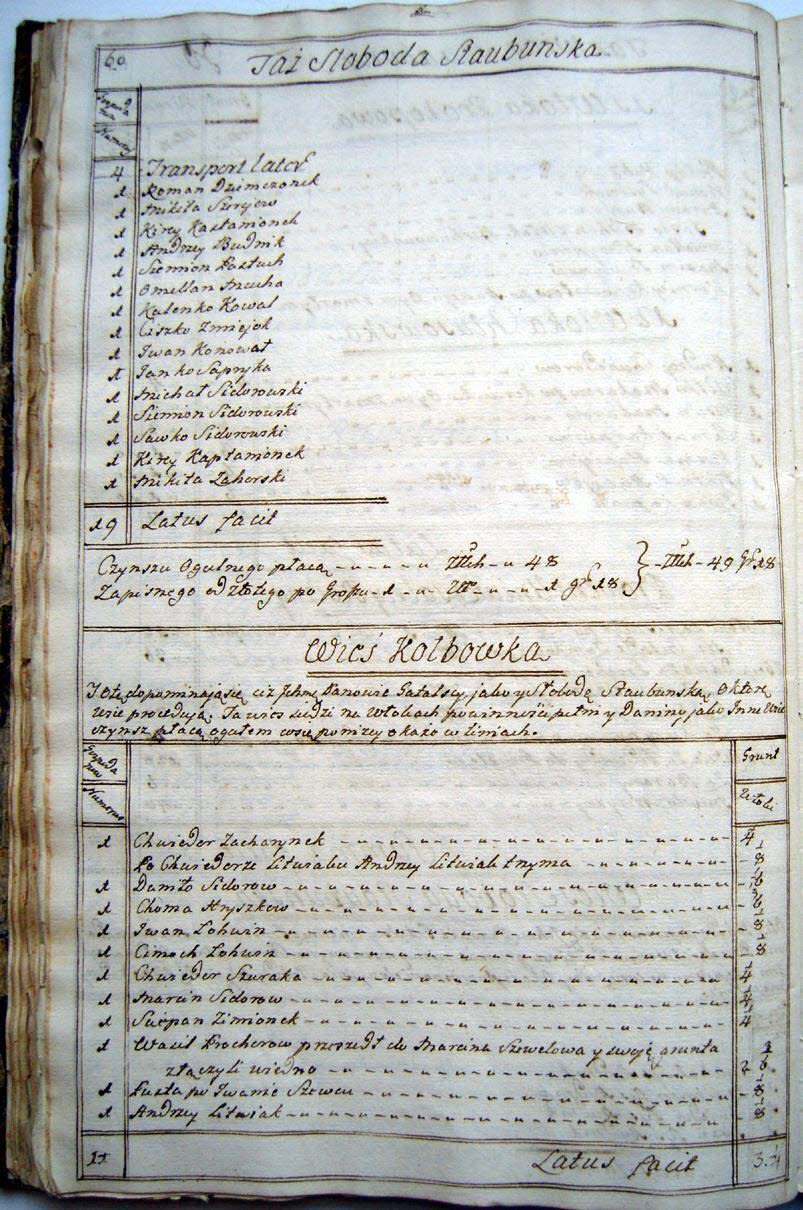 60
Taż Słoboda Staubunska
Numerus
4 Transport Lateris
1 Roman Dziemczonek
1 Mikita Szerszew
1 Kirey Kastamionek
1 Andrzey Budnik
1 Siemion Pastuch
1 Omellan Mucha
1 Kalenko Kowal
1 Ciszko Zmiejok
1 Iwan Konował
1 Janko Sapryka
1 Michał Sidorowski
1 Siemion Sidorowski
1 Sawko Sidorowski
1 Kirey Kaptamionek
1 Mikita Zahorski
19 Latus facit
Czynszu Ogulnego płacą Złłch 48
Zapisnego od złłtego po Groszu 1 Zł 1 gr 18 } Złłch 49 Gr 18
Wieś Kołbowka
I Otę dopominają się ciż Ichmć Panowie Gatalscy, jako y Słobodę Staubunską, Oktorę
Wsie procedują. Ta wieś siedzi na Włokach powinności pełni y Daninę jako Inne Wsie
czynsz płacą ogułem co się poniżey okaże w Liniach.
Numerus Grunt
Włoki
1 Chwieder Zacharynek 1/4
Po Chwiederze Litwiaku Andrzey Litwiak trzyma 1/8
1 Daniło Sidorow 1/8
1 Choma Hryszkow
1 Iwan Łohwin 1/8
1 Cimoch Łohwin 1/8
1 Chwieder Szuraka 1/4
1 Marcin Sidorow 1/4
1 Sciepan Zimionek 1/4
1 Wasil Prochorow przeszedł do Marcina Szewelowa y swoje grunta
złączyli wiedno
1 Pusta po Iwanie Szewcu 1/8
1 Andrzey Litwiak 1/8
11 Latus facit